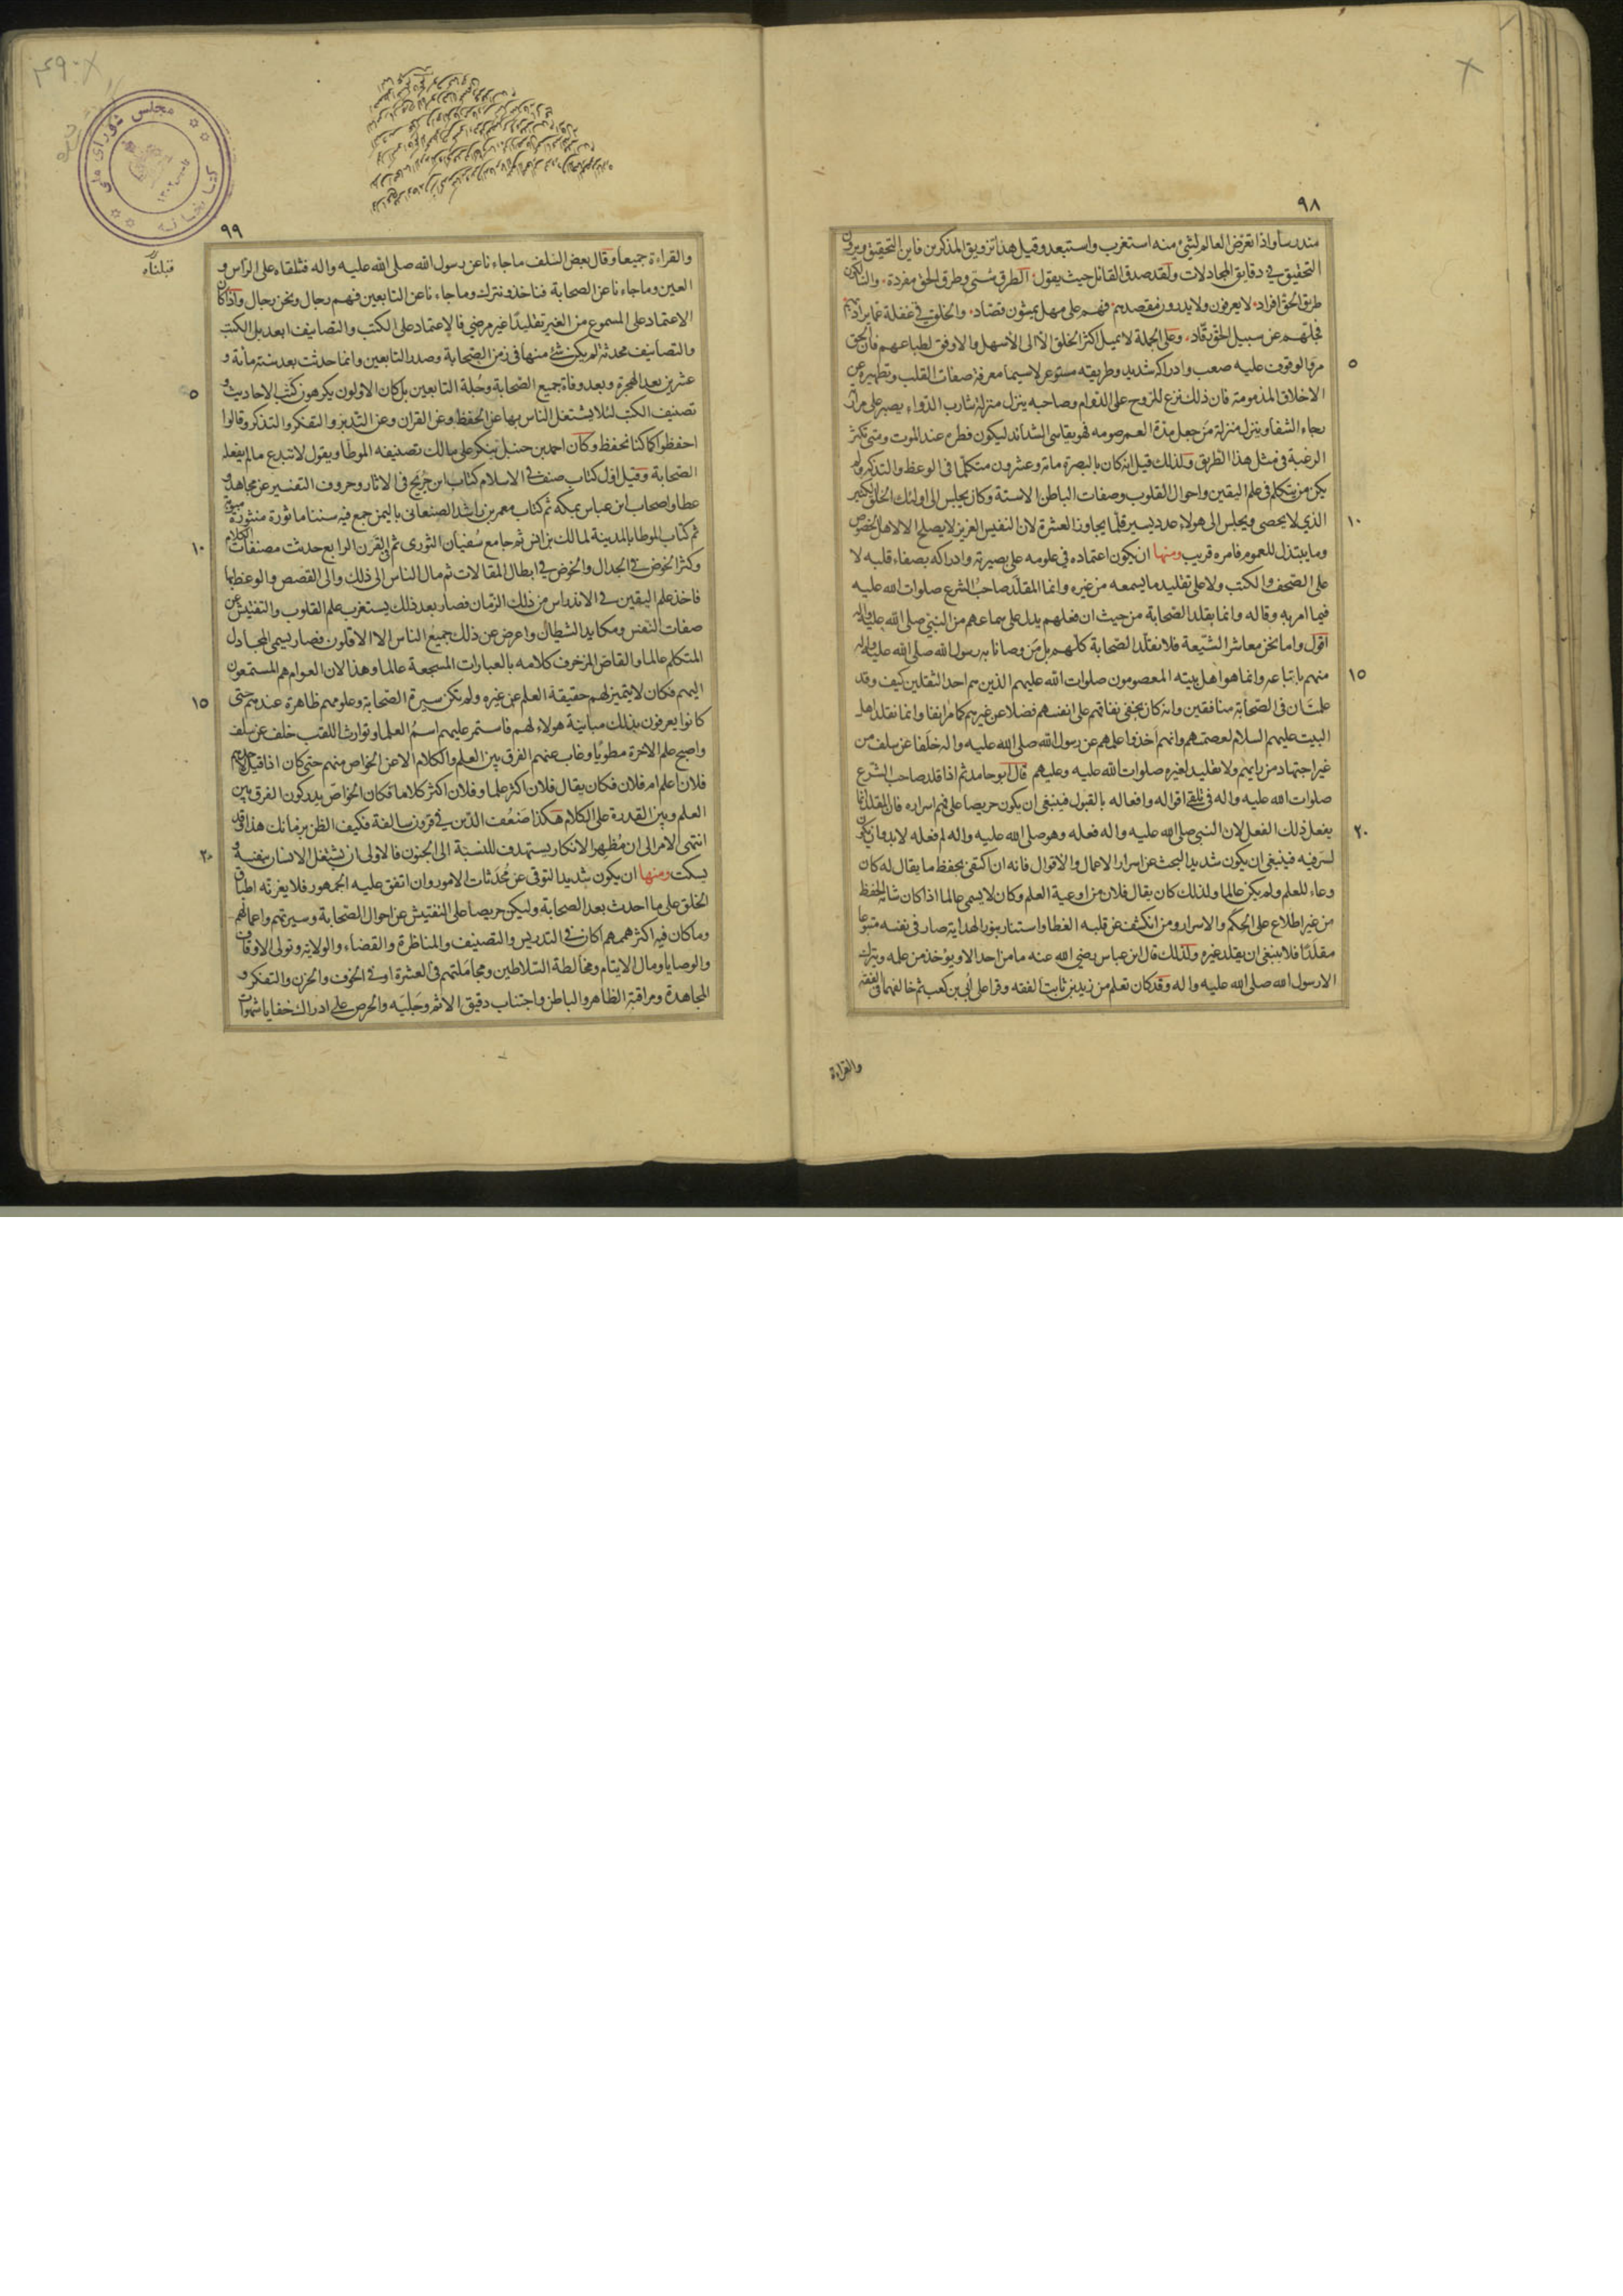 ٩٨
مندرسا واذا تعرّض العالم لشئ منه استغرب واستبعد وقيل هذا تزويق المذكرين فاين التحقيق ويرون
التحقيق في دقايق المجادلات ولقد صدق القائل حيث يقول الطرق شتى وطرق الحق مفردة والسالكون
طريق الحق افراد لا يعرفون ولا يدرون مقصدهم فهم على مهل يمشون قصّاد والخلق في غفلة عما يراد بهم
فجلّهم عن سبيل الحق رقّاد وعلى الجملة لا يميل اكثر الخلق الا الى الاسهل والاوفق لطباعهم فان الحق
مرّ والوقوف عليه صعب وادراكه شديد وطريقه مستوعر لا سيما معرفة صفات القلب وتطهيره عن
الاخلاق المذمومة فان ذلك نزع للروح على الدوام وصاحبه ينزل منزلة شارب الدواء يصبر على مرارته
رجاء الشفا وينزل منزلة من جعل مدة العمر صومه فهو يقاسى الشدائد ليكون فطره عند الموت ومتى تكثر
الرغبة في مثل هذا الطريق ولذلك قيل انه كان بالبصرة مائة وعشرون متكلما في الوعظ والتذكير ولم
يكن من يتكلم في علم اليقين واحوال القلوب وصفات الباطن الا ستة وكان يجلس الى اولئك الخلق الكثير
الذي لا يحصى ويجلس الى هؤلاء عدد يسير قلّما يجاوز العشرة لان النفيس العزيز لا يصلح الا لاهل الخصوص
وما يبتذل للعموم فامره قريب ومنها ان يكون اعتماده في علومه على بصيرته وادراكه بصفاء قلبه لا
على الصحف والكتب ولا على تقليد ما يسمعه من غيره وانما المقلّد صاحب الشرع صلوات الله عليه
فيما امر به وقاله وانما يقلد الصحابة من حيث ان فعلهم يدل على سماعهم من النبي صلى الله عليه واله
اقول واما نحن معاشر الشيعة فلا نقلّد الصحابة كلّهم بل من وصّانا به رسول الله صلى الله عليه واله
منهم باتباعه وانما هو اهل بيته المعصومون صلوات الله عليهم الذين هم احد الثقلين كيف وقد
علمت ان في الصحابة منافقين وانه كان يخفى نفاقهم على انفسهم فضلا عن غيرهم كما مرّ انفا وانما نقلد اهل
البيت عليهم السلام لعصمتهم وانهم اخذوا علمهم عن رسول الله صلى الله عليه واله خلفا عن سلف من
غير اجتهاد من رايهم ولا تقليد لغيره صلوات الله عليه وعليهم قال ابو حامد ثم اذا قلد صاحب الشرع
صلوات الله عليه واله في تلقي اقواله وافعاله بالقبول فينبغى ان يكون حريصا على فهم اسراره فان المقلد انما
يفعل ذلك الفعل لان النبي صلى الله عليه واله فعله وهو صلى الله عليه واله لم فعله لا بد وان يكون
لسرّ فيه فينبغى ان يكون شديد البحث عن اسرار الاعمال والاقوال فانه ان اكتفى بحفظ ما يقال له كان
وعاء للعلم ولم يكن عالما ولذلك كان يقال فلان من اوعية العلم وكان لا يسمى عالما اذا كان شانه الحفظ
من غير اطلاع على الحكم والاسرار ومن انكشف عن قلبه الغطا واستنار بنور الهداية صار في نفسه متبوعا
مقلّدا فلا ينبغى ان يقلد غيره ولذلك قال ابن عباس رضي الله عنه ما من احد الا ويؤخذ من علمه ويترك
الا رسول الله صلى الله عليه واله وقد كان تعلم من زيد بن ثابت الفقه وقرا على ابي بن كعب ثم خالفهما في الفقه
والقراءة
٥
١٠
١٥
٢٠
٩٩
والقراءة جميعا وقال بعض السلف ما جاءنا عن رسول الله صلى الله عليه واله فنلقاه على الراس و
العين وما جاءنا عن الصحابة فناخذ ونترك وما جاءنا عن التابعين فهم رجال ونحن رجال واذا كان
الاعتماد على المسموع من الغير تقليدا غير مرضي فالاعتماد على الكتب والتصانيف ابعد بل الكتب
والتصانيف محدثة لم يكن شئ منها في زمن الصحابة وصدر التابعين وانما حدثت بعد سنة مائة و
عشرين بعد الهجرة وبعد وفاة جميع الصحابة وجلة التابعين بل كان الاولون يكرهون كتب الاحاديث و
تصنيف الكتب لئلا يشتغل الناس بها عن الحفظ وعن القران وعن التدبر والتفكر والتذكر وقالوا
احفظوا كما كنا نحفظ وكان احمد بن حنبل ينكر على مالك تصنيفه الموطا ويقول لا تبدع ما لم يفعله
الصحابة وقيل اول كتاب صنف في الاسلام كتاب ابن جريج في الاثار وحروف التفسير عن مجاهد و
عطا واصحاب ابن عباس بمكة ثم كتاب معمر بن راشد الصنعاني باليمن جمع فيه سننا ماثورة منثورة مبوبة
ثم كتاب الموطا بالمدينة لمالك بن انس ثم جامع سفيان الثورى ثم في القرن الرابع حدثت مصنفات الكلام
وكثر الخوض في الجدال والخوض في ابطال المقالات ثم مال الناس الى ذلك والى القصص والوعظ بها
فاخذ علم اليقين في الاندراس من ذلك الزمان فصار بعد ذلك يستغرب علم القلوب والتفتيش عن
صفات النفس ومكايد الشيطان واعرض عن ذلك جميع الناس الا الاقلون فصار يسمى المجادل
المتكلم عالما والقاص المزخرف كلامه بالعبارات المسجعة عالما وهذا لان العوام هم المستمعون
اليهم فكان لا يتميز لهم حقيقة العلم عن غيره ولم تكن سيرة الصحابة وعلومهم ظاهرة عندهم حتى
كانوا يعرفون بذلك مباينة هؤلاء لهم فاستمر عليهم اسم العلما وتوارث اللقب خلف عن سلف
واصبح علم الاخرة مطويّا وغاب عنهم الفرق بين العلم والكلام الا عن الخواص منهم حتى كان اذا قيل لاحدهم
فلان اعلم ام فلان فكان يقال فلان اكثر علما وفلان اكثر كلاما فكان الخواص يدركون الفرق بين
العلم وبين القدرة على الكلام هكذا ضعف الدين في قرون سالفة فكيف الظن بزمانك هذا وقد
انتهى الامر الى ان مظهر الانكار يستهدف للنسبة الى الجنون فالاولى ان يشتغل الانسان بنفسه و
يسكت ومنها ان يكون شديد التوقى عن محدثات الامور وان اتفق عليه الجمهور فلا يغرنّه اطباق
الخلق على ما احدث بعد الصحابة وليكن حريصا على التفتيش عن احوال الصحابة وسيرتهم واعمالهم
وما كان فيه اكثر همهم اكان في التدريس والتصنيف والمناظرة والقضاء والولاية وتولى الاوقاف
والوصايا ومال الايتام ومخالطة السلاطين ومجاملتهم في العشرة او في الخوف والحزن والتفكر و
المجاهدة ومراقبة الظاهر والباطن واجتناب دقيق الاثم وجليّه والحرص على ادراك خفايا شهوات
٥
١٠
١٥
٢٠
مجلس شورای ملی
کتابخانه